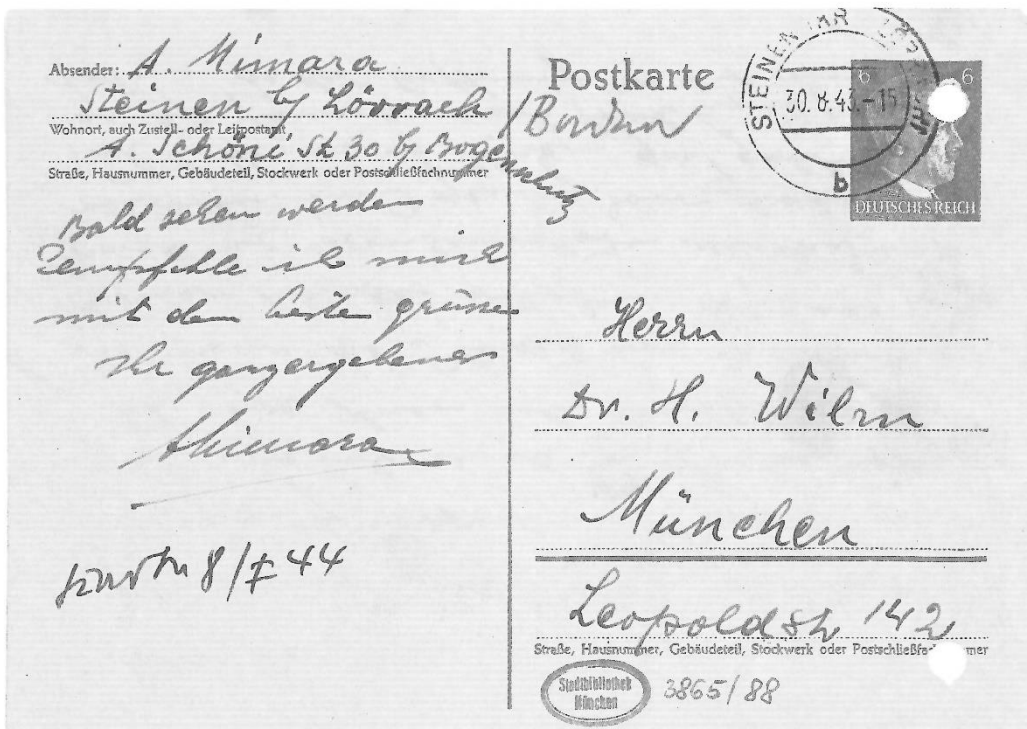 Absender: A. Mimara
Steinen b/ Lörrach / Baden
Wohnort, auch Zustell- oder Leitpostamt
A. Schöni St 30 b/ Bogenschütz
Straße, Hausnummer, Gebäudeteil, Stockwerk oder Postschließfachnummer
Bald sehen werden
empfehle ich mich
mit dem beste grüsse
Ihr ganzergebener
AMimara
8/I 44
Postkarte
STEINEN
30.8.43.-15
b
6 6
DEUTSCHES REICH
Herrn
Dr. H. Wilm
München
Leopoldstr 142
Straße, Hausnummer, Gebäudeteil, Stockwerk oder Postschließfachnummer
Stadtbibliothek
München
3865/88